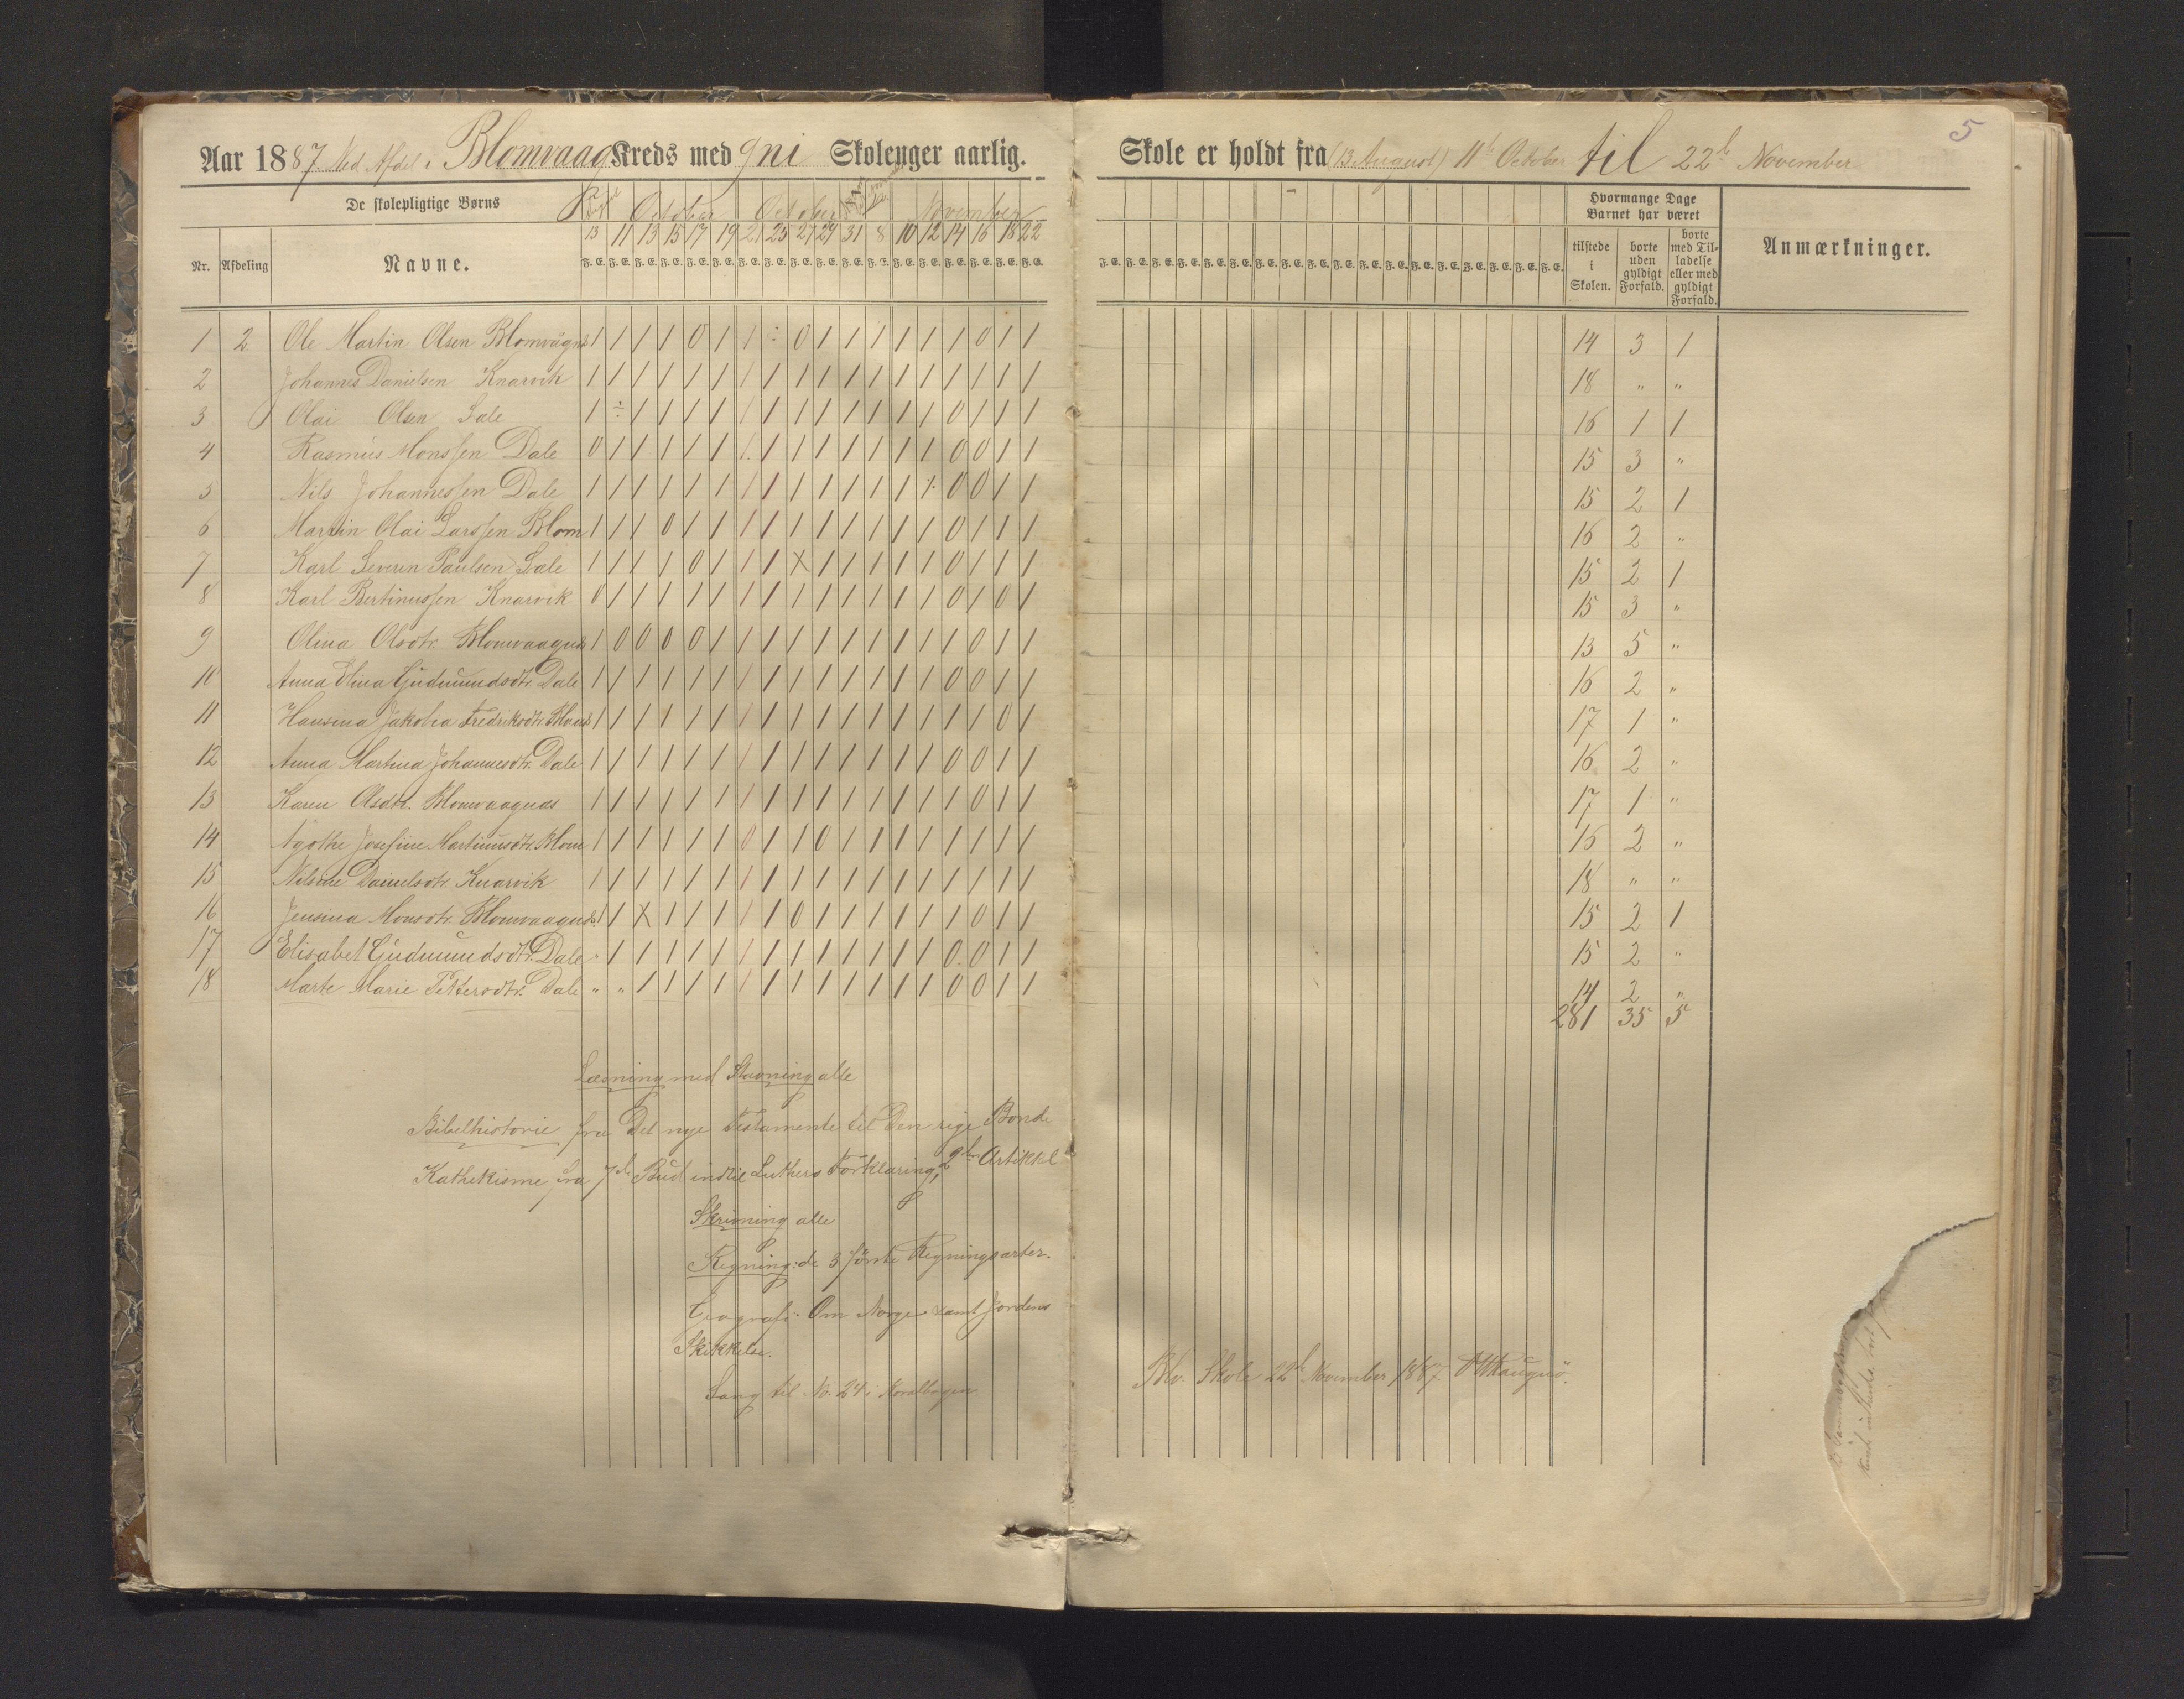 5
Aar 1887. Ned. Afdel i Blomvaag Kreds med 9 ni Skoleuger aarlig.
Skole er holdt fra (13 August) 11te October til 22de November
De skolepligtige Børns
October October November
Hvormange Dage Barnet har været
Nr. Afdeling Navne.
13 11 13 15 17 19 21 25 27 29 31 8 10 12 14 16 18 22
tilstede i Skolen. borte uden gyldigt Forfald. borte med Tilladelse eller med gyldigt Forfald.
Anmærkninger.
F. E. F. E. F. E. F. E. F. E. F. E. F. E. F. E. F. E. F. E. F. E. F. E. F. E. F. E. F. E. F. E. F. E. F. E.
1 2 Ole Martin Olsen Blomvågnes 1 1 1 1 0 1 1 ÷ 0 1 1 1 1 1 1 0 1 1 14 3 1
2 Johannes Danielsen Knarvik 1 1 1 1 1 1 1 1 1 1 1 1 1 1 1 1 1 1 18 " "
3 Olai Olsen Dale 1 ÷ 1 1 1 1 1 1 1 1 1 1 1 1 0 1 1 1 16 1 1
4 Rasmus Monssen Dale 0 1 1 1 1 1 1 1 1 1 1 1 1 1 0 0 1 1 15 3 "
5 Nils Johannessen Dale 1 1 1 1 1 1 1 1 1 1 1 1 1 ÷ 0 0 1 1 15 2 1
6 Martin Olai Larssen Blom 1 1 1 0 1 1 1 1 1 1 1 1 1 1 0 1 1 1 16 2 "
7 Karl Severin Paulsen Dale 1 1 1 1 0 1 1 1 X 1 1 1 1 1 0 1 1 1 15 2 1
8 Karl Bertinussen Knarvik 0 1 1 1 1 1 1 1 1 1 1 1 1 1 0 1 0 1 15 3 "
9 Olina Olsdtr. Blomvaagnes 1 0 0 0 0 1 1 1 1 1 1 1 1 1 1 0 1 1 13 5 "
10 Anna Elina Gudmundsdtr. Dale 1 1 1 1 1 1 1 1 1 1 1 1 1 1 0 0 1 1 16 2 "
11 Hansina Jakobia Fredriksdtr. 1 1 1 1 1 1 1 1 1 1 1 1 1 1 1 1 0 1 17 1 "
12 Anna Martina Johannesdtr. Dale 1 1 1 1 1 1 1 1 1 1 1 1 1 1 0 0 1 1 16 2 "
13 Karen Olsdtr. Blomvaagnes 1 1 1 1 1 1 1 1 1 1 1 1 1 1 1 0 1 1 17 1 "
14 Agathe Josefine Martinusdtr. Blom 1 1 1 1 1 1 0 1 1 0 1 1 1 1 1 1 1 1 16 2 "
15 Nilsine Danielsdtr. Knarvik 1 1 1 1 1 1 1 1 1 1 1 1 1 1 1 1 1 1 18 " "
16 Jensina Monsdtr. Blomvaagnes 1 1 X 1 1 1 1 1 0 1 1 1 1 1 1 0 1 1 15 2 1
17 Elisabet Gudmundsdtr. Dale " 1 1 1 1 1 1 1 1 1 1 1 1 1 0 0 1 1 15 2 "
18 Marte Marie Pettersdtr. Dale " " 1 1 1 1 1 1 1 1 1 1 1 1 0 0 1 1 14 2 "
281 35 5
Læsning med Stavning alle
Bibelhistorie fra Det nye Testamente til Den rige Bonde
Kathekisme fra 7de Bud indtil Luthers Forklaring, 2den Artikkel
Skrivning alle
Regning: de 3 første Regningsarter.
Geografi: Om Norge samt Jordens
Skikkelse.
Sang til No. 24 i Koralbogen.
Blv. Skole 22de November 1887.